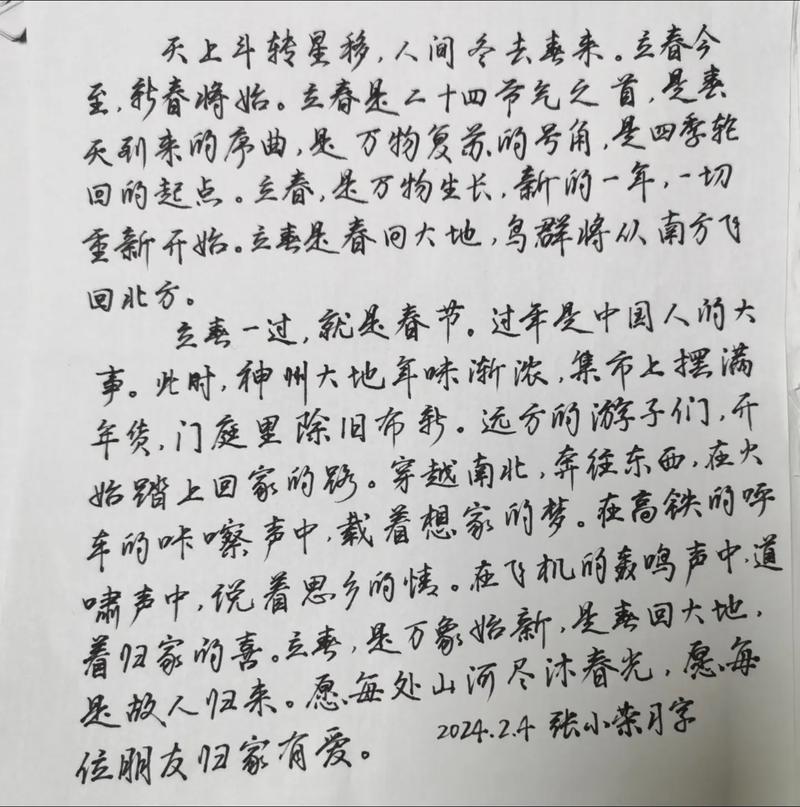 天上斗转星移，人间冬去春来。立春今
至，新春将始。立春是二十四节气之首，是春
天到来的序曲，是万物复苏的号角，是四季轮
回的起点。立春，是万物生长，新的一年，一切
重新开始。立春是春回大地，鸟群将从南方飞
回北方。
立春一过，就是春节。过年是中国人的大
事。此时，神州大地年味渐浓，集市上摆满
年货，门庭里除旧布新。远方的游子们，开
始踏上回家的路。穿越南北，奔往东西，在火
车的咔嚓声中，载着想家的梦。在高铁的呼
啸声中，说着思乡的情。在飞机的轰鸣声中，道
着归家的喜。立春，是万象始新，是春回大地，
是故人归来。愿每处山河尽沐春光，愿每
位朋友归家有爱。
2024.2.4 张小荣习字